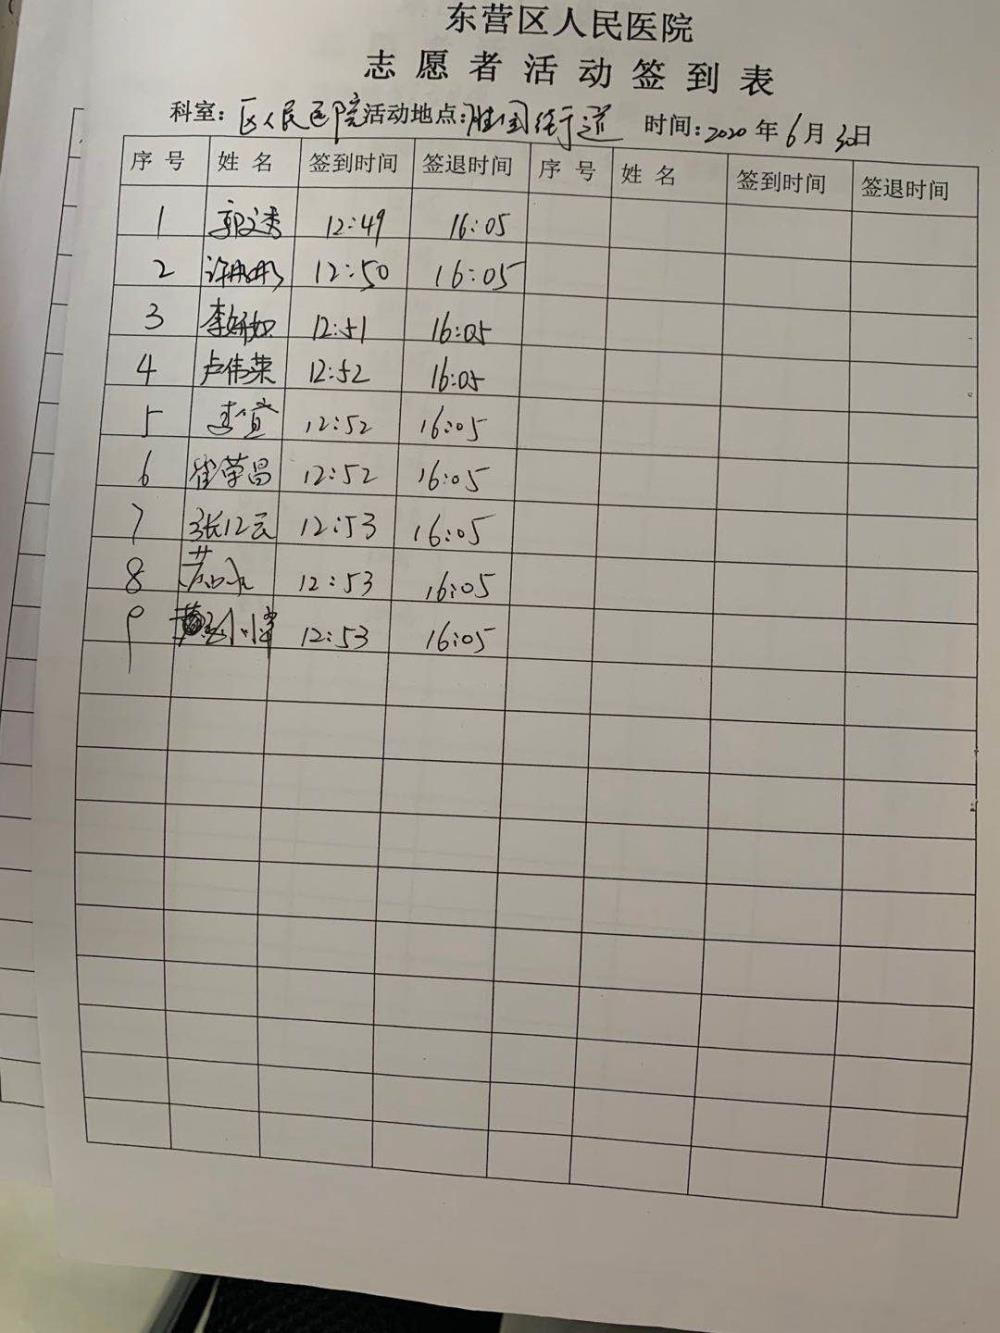 东营区人民医院
志愿者活动签到表
科室: 区人民医院 活动地点: 胜园街道 时间: 2020 年 6 月 30 日
序号 姓名 签到时间 签退时间 序号 姓名 签到时间 签退时间
1 12:49 16:05
2 许彤彤 12:50 16:05
3 12:51 16:05
4 卢伟荣 12:52 16:05
5 李宜 12:52 16:05
6 崔荣昌 12:52 16:05
7 张江云 12:53 16:05
8 12:53 16:05
9 12:53 16:05